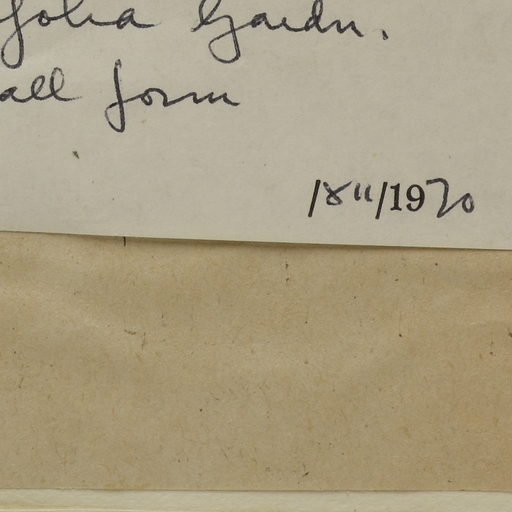 folia Gaedn.
all form
/1970